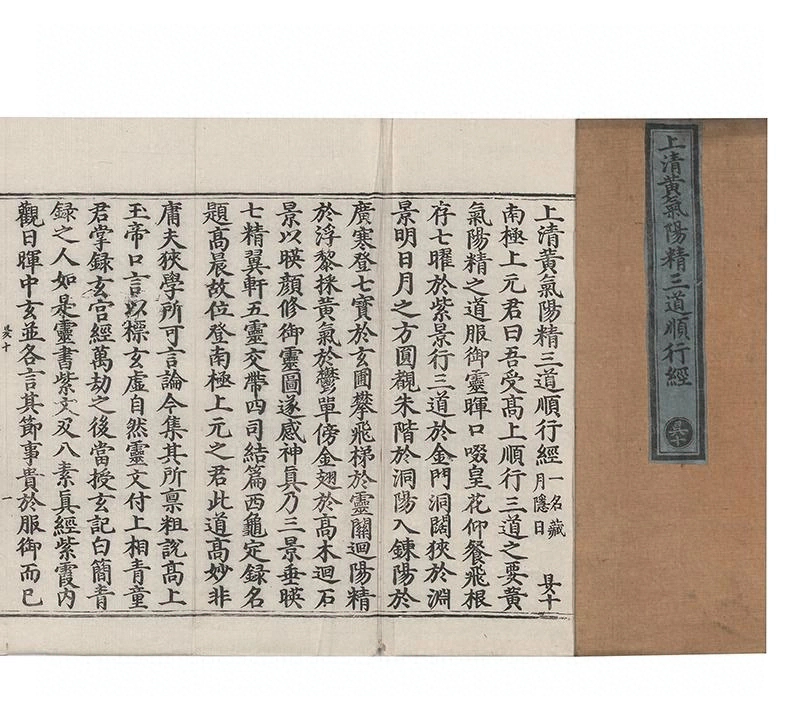 上清黃氣陽精三道順行經
上清黃氣陽精三道順行經一名藏月隱日
南極上元君曰吾受高上順行三道之要黃
氣陽精之道服御靈暉口啜皇花仰餐飛根
存七曜於紫景行三道於金門洞闊狹於淵
景明日月之方圓觀朱階於洞陽入鍊陽於
廣寒登七寶於玄圃攀飛梯於靈關迴陽精
於浮黎採黃氣於鬱單傍金翅於高木迴石
景以暎顏修御靈圖遂感神真乃三景垂暎
七精翼軒五靈交帶四司結篇西龜定錄名
題高晨故位登南極上元之君此道高妙非
庸夫狹學所可言論今集其所稟粗說高上
玉帝口言以標玄虛自然靈文付上相青童
君掌錄玄宮經萬劫之後當授玄記白簡青
録之人如是靈書紫文及八素真經紫霞內
觀日暉中玄並各言其節事貴於服御而已
一